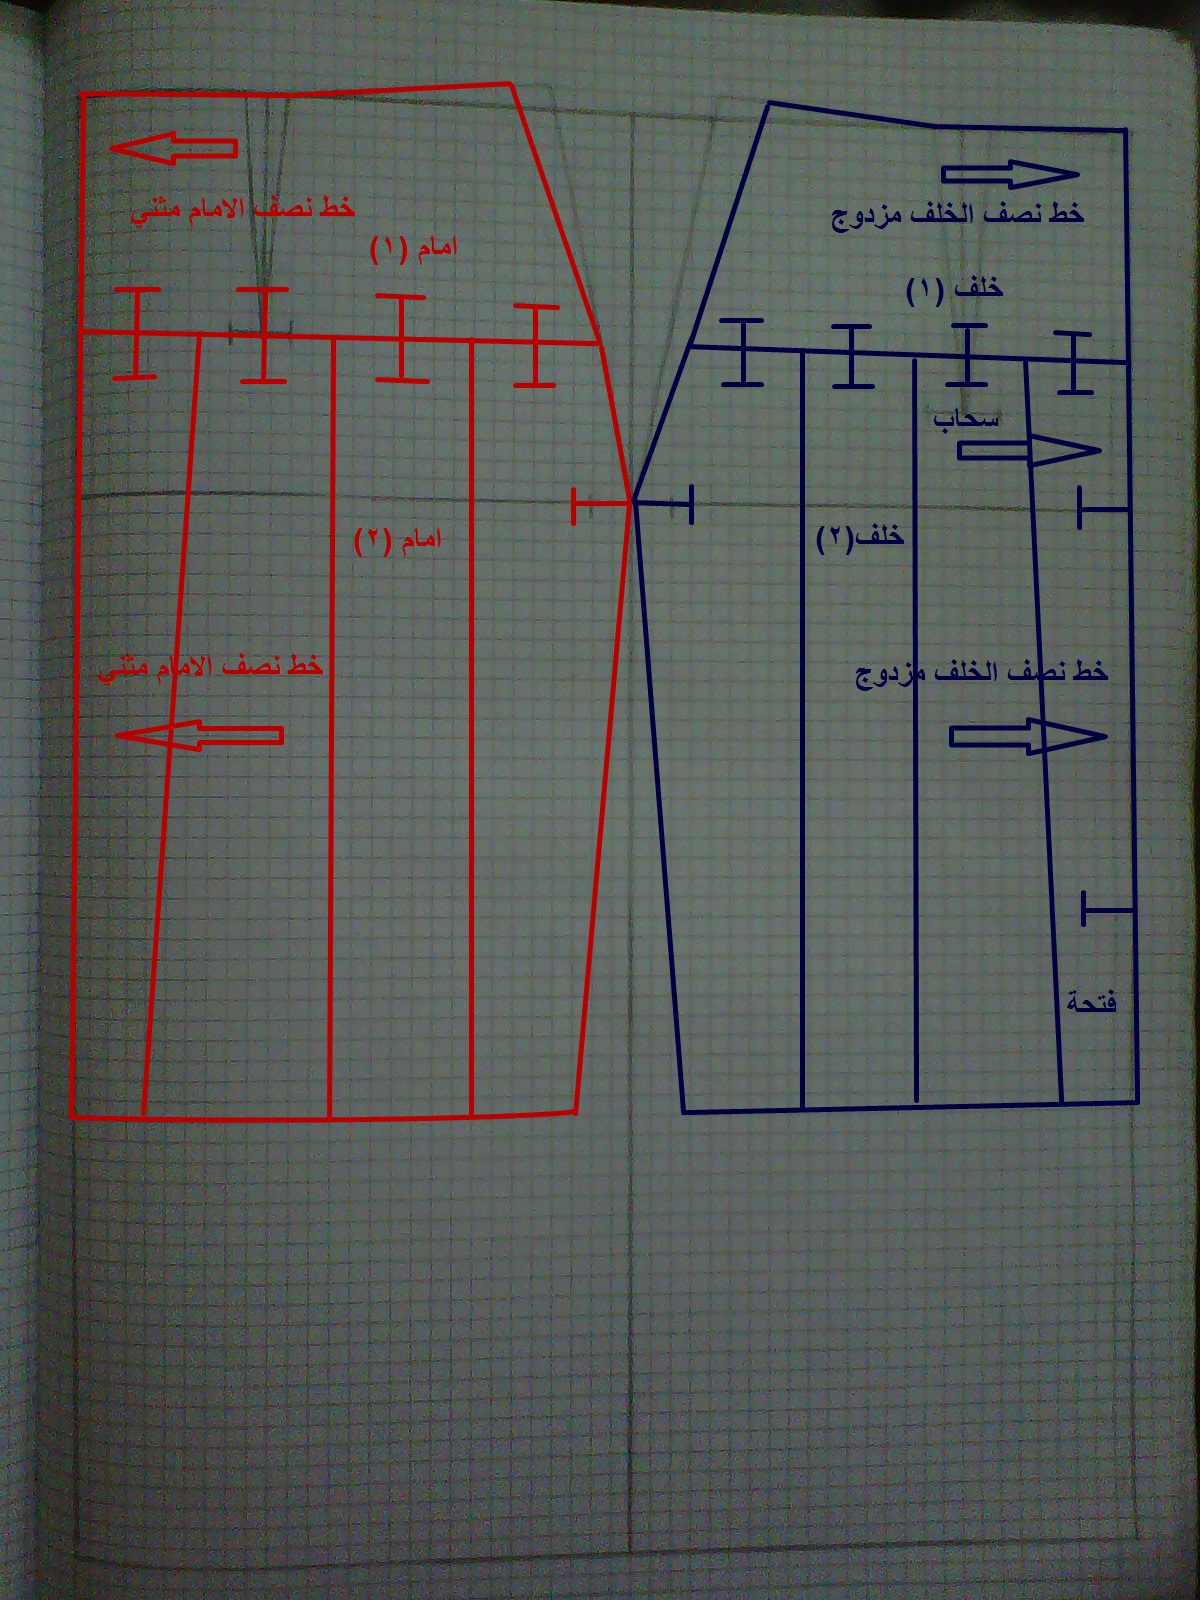 خط نصف الامام مثني
امام (١)
امام (٢)
خط نصف الامام مثني
خط نصف الخلف مزدوج
خلف (١)
سحاب
خلف(٢)
خط نصف الخلف مزدوج
فتحة